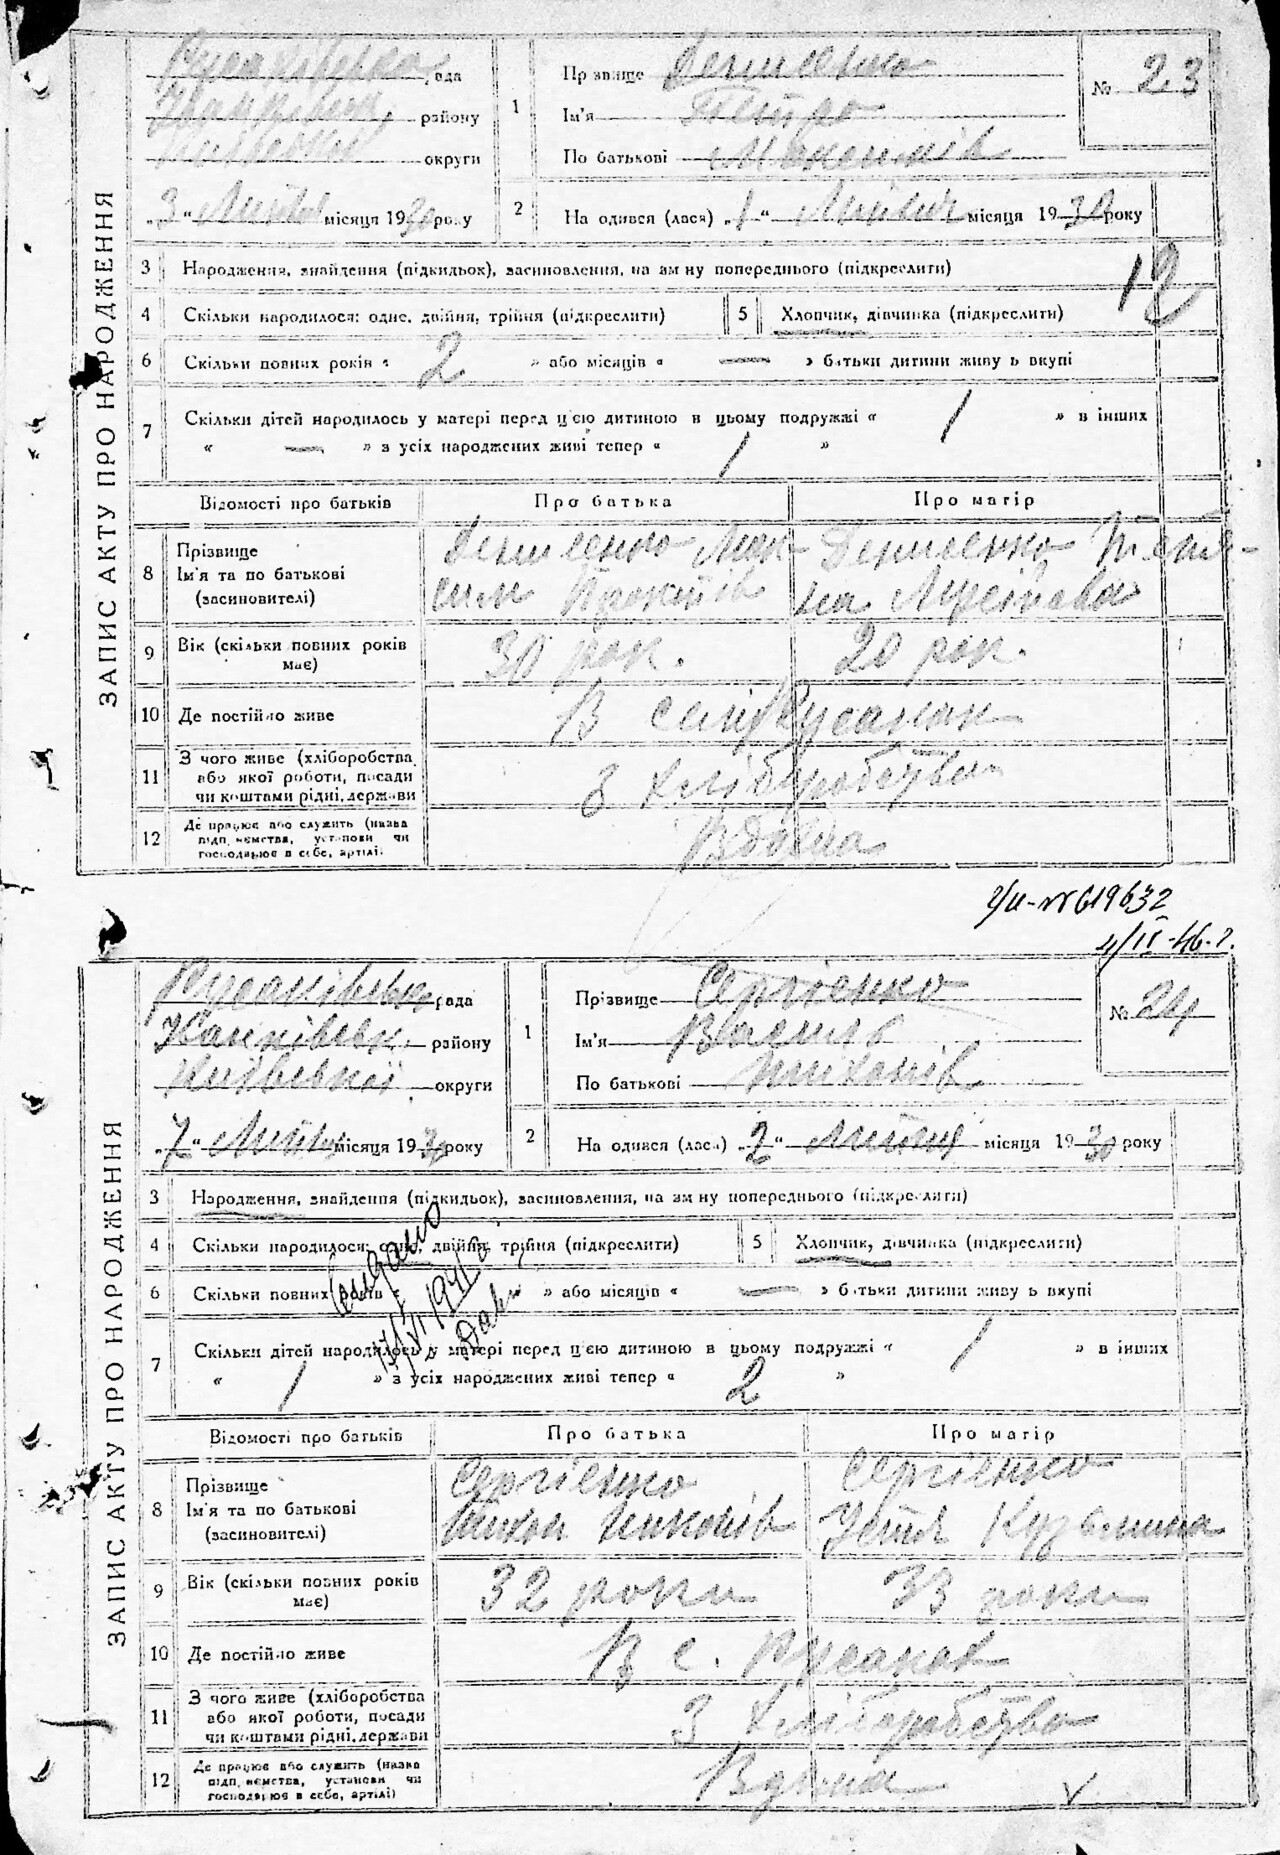 ЗАПИС АКТУ ПРО НАРОДЖЕННЯ
Русанівська рада
району
округи
„3“ Лютого місяця 1930 року
1
Прізвище Денисенко
Ім'я Петро
По батькові Максимів
№ 23
2
На одився (лася) „1“ Лютого місяця 1930 року
3 Народження, знайдення (підкидьок), засиновлення, на зм ну попереднього (підкреслити)
12
4 Скільки народилося: одне, двійня, трійня (підкреслити)
5 Хлопчик, дівчинка (підкреслити)
6 Скільки повних років « 2 » або місяців « — » батьки дитини живу ь вкупі
7 Скільки дітей народилось у матері перед цією дитиною в цьому подружжі « 1 » в інших
« — » з усіх народжених живі тепер « 1 »
Відомості про батьків Про батька Про матір
8 Прізвище
Ім'я та по батькові
(засиновителі)
Денисенко Мак-
сим
Денисенко Тетя-
на
9 Вік (скільки повних років
має)
30 рок. 20 рок.
10 Де постійно живе
В селі Русанов
11 З чого живе (хліборобства
або якої роботи, посади
чи коштами рідні, держави
З хліборобства
12 Де працює або служить (назва
підп ємства, установи чи
господарює в себе, артілі)
Вдома
№ 619632
4/II-46 г.
ЗАПИС АКТУ ПРО НАРОДЖЕННЯ
Русанівська рада
району
Київської округи
„7“ Лютого місяця 1930 року
1
Прізвище Сергієнко
Ім'я Василь
По батькові Тихонів
№ 24
2
На одився (лася) „2“ Лютого місяця 1930 року
3 Народження, знайдення (підкидьок), засиновлення, на зм ну попереднього (підкреслити)
4 Скільки народилося: одне, двійня, трійня (підкреслити)
5 Хлопчик, дівчинка (підкреслити)
6 Скільки повних років « » або місяців « — » батьки дитини живу ь вкупі
7 Скільки дітей народилось у матері перед цією дитиною в цьому подружжі « 1 » в інших
« 1 » з усіх народжених живі тепер « 2 »
Відомості про батьків Про батька Про матір
8 Прізвище
Ім'я та по батькові
(засиновителі)
Сергієнко
Тихон
Сергієнко
Устя Кузьмина
9 Вік (скільки повних років
має)
32 роки 33 роки
10 Де постійно живе
В с. Русанов
11 З чого живе (хліборобства
або якої роботи, посади
чи коштами рідні, держави
З хліборобства
12 Де працює або служить (назва
підп ємства, установи чи
господарює в себе, артілі)
Вдома